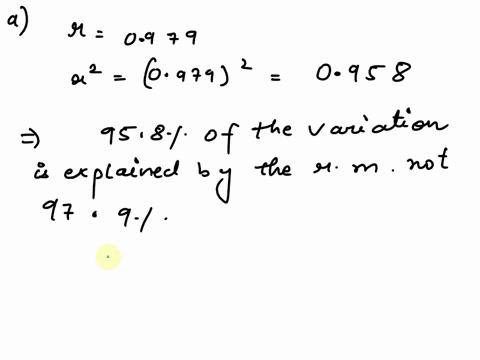 a) r = 0.979
r² = (0.979)² = 0.958
⇒ 95.8% of the variation
is explained by the r.m. not
97.9%.